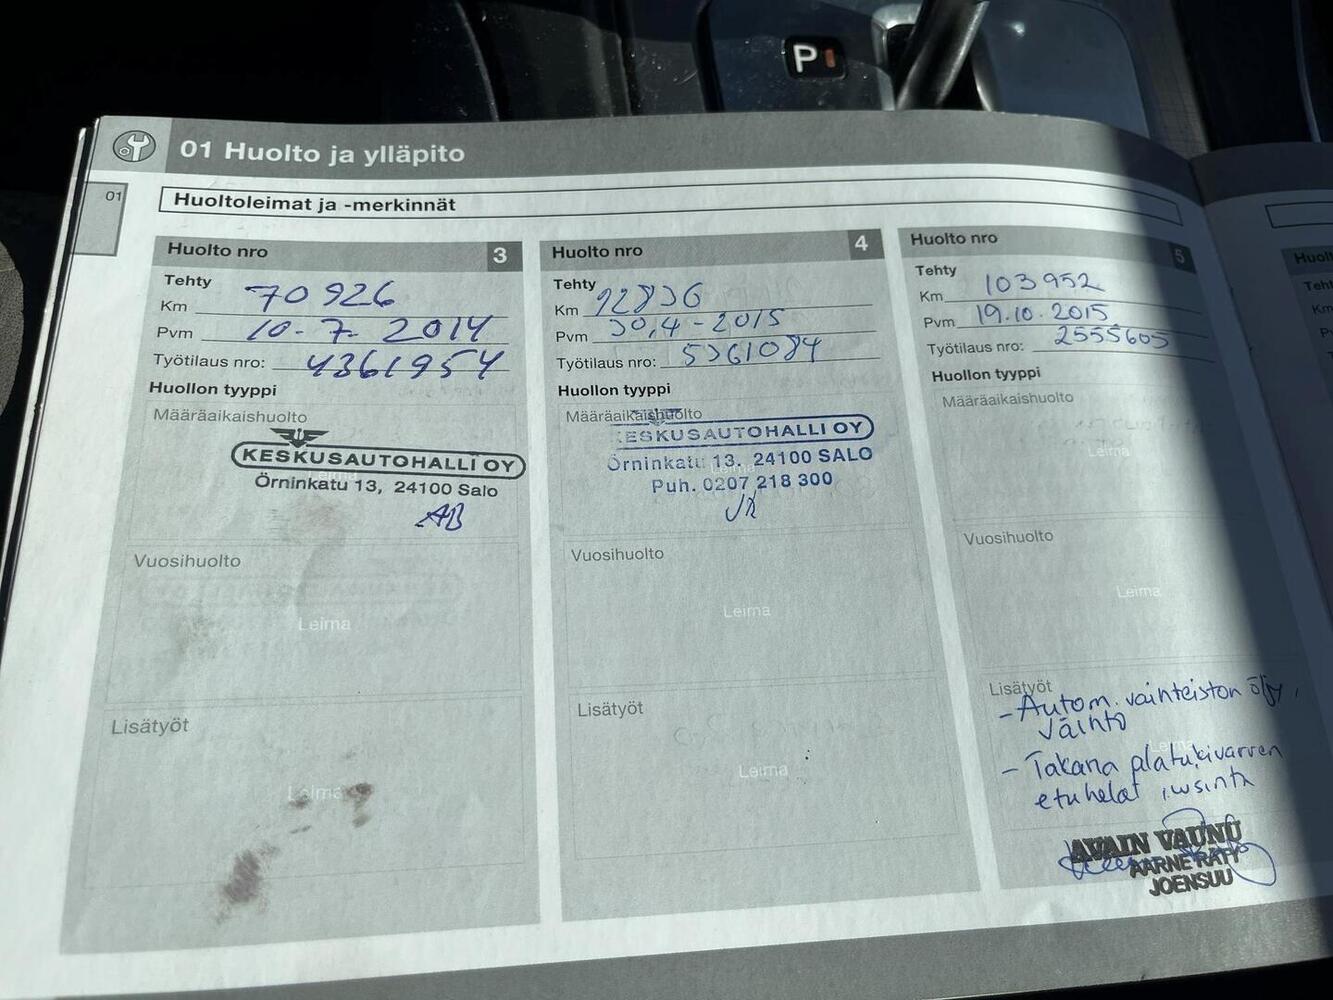 P
01 Huolto ja ylläpito
01
Huoltoleimat ja -merkinnät
Huolto nro 3
Tehty
Km 70926
Pvm 10-7-2014
Työtilaus nro: 4361954
Huollon tyyppi
Määräaikaishuolto
KESKUSAUTOHALLI OY
Örninkatu 13, 24100 Salo
AB
Vuosihuolto
Leima
Lisätyöt
Leima
Huolto nro 4
Tehty
Km 92836
Pvm 30,4-2015
Työtilaus nro: 5361084
Huollon tyyppi
Määräaikaishuolto
KESKUSAUTOHALLI OY
Örninkatu 13, 24100 SALO
Puh. 0207 218 300
Vuosihuolto
Leima
Lisätyöt
Leima
Huolto nro 5
Tehty
Km 103952
Pvm 19.10.2015
Työtilaus nro: 2555605
Huollon tyyppi
Määräaikaishuolto
Leima
Vuosihuolto
Leima
Lisätyöt
- Autom. vainteiston öljy
vaihto
- Takana alatukivarren
etuhelat uusinta
AVAIN VAUNU
AARNE RÄTY
JOENSUU